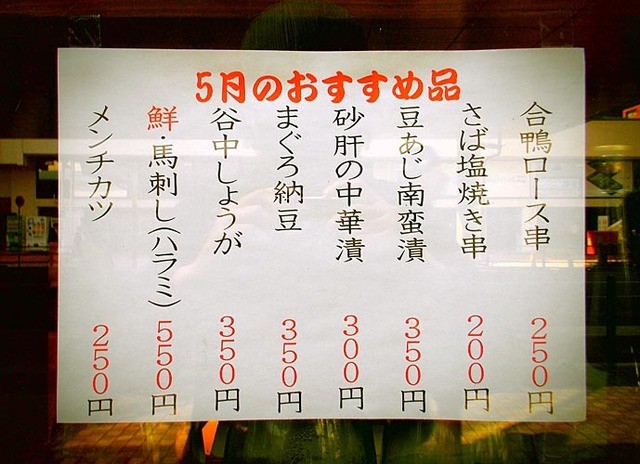 5月のおすすめ品
合鴨ロース串 250円
さば塩焼き串 200円
豆あじ南蛮漬 350円
砂肝の中華漬 300円
まぐろ納豆 350円
谷中しょうが 350円
鮮・馬刺し(ハラミ) 550円
メンチカツ 250円